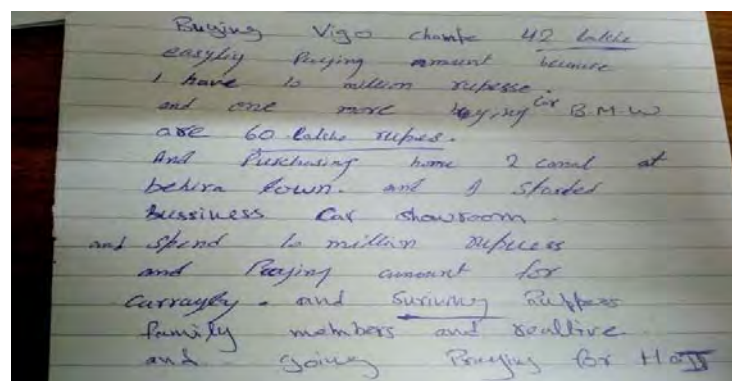 Buying Vigo chamfe 42 lakhs
easyliy Paying amount because
I have 10 million rupesse.
and one more buying car B.M.W
are 60 lakhs rupes.
And Purchasing home 2 canal at
behira town. and I started
bussiness Car showroom.
and spend 10 million rupuess
and Paying amount for
Currayly. and Suriving
family members and realtive.
and going Praying for Hajj